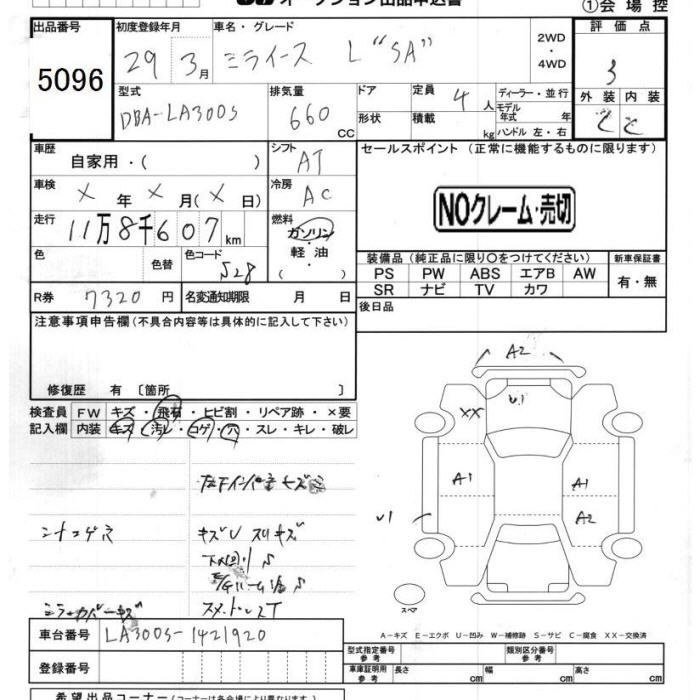 オークション出品申込書
①会場控
出品番号 5096
初度登録年月 29 3月
車名・グレード ミライース L "SA"
2WD・4WD
評価点 3
型式 DBA-LA300S
排気量 660 CC
ドア
形状
定員 4人
積載 kg
ディーラー・並行
モデル年式 年
ハンドル 左・右
外装 内装
車歴 自家用・( )
シフト AT
セールスポイント (正常に機能するものに限ります)
車検 X年X月(X日)
冷房 AC
NOクレーム・売切
走行 11万8千607km
燃料 ガソリン・軽油・( )
色 色替
色コード S28
装備品 (純正品に限り○をつけてください)
新車保証書
PS PW ABS エアB AW
SR ナビ TV カワ
有・無
R券 7320円
名変通知期限 月 日
後日品
注意事項申告欄 (不具合内容等は具体的に記入して下さい)
修復歴 有 〔箇所 〕
検査員記入欄
FW キズ・飛石・ヒビ割・リペア跡・×要
内装 キズ・汚レ・コゲ・穴・スレ・キレ・破レ
シートコゲ穴
キズU スリキズ
ミラーカバーキズ
A2
U1
XX
A1
A1
A2
U1
スペア
A-キズ E-エクボ U-凹み W-補修跡 S-サビ C-腐食 XX-交換済
車台番号 LA300S-1421920
登録番号
型式指定番号 参考
類別区分番号 参考
車庫証明用 参考
長さ cm
幅 cm
高さ cm
希望出品コーナー